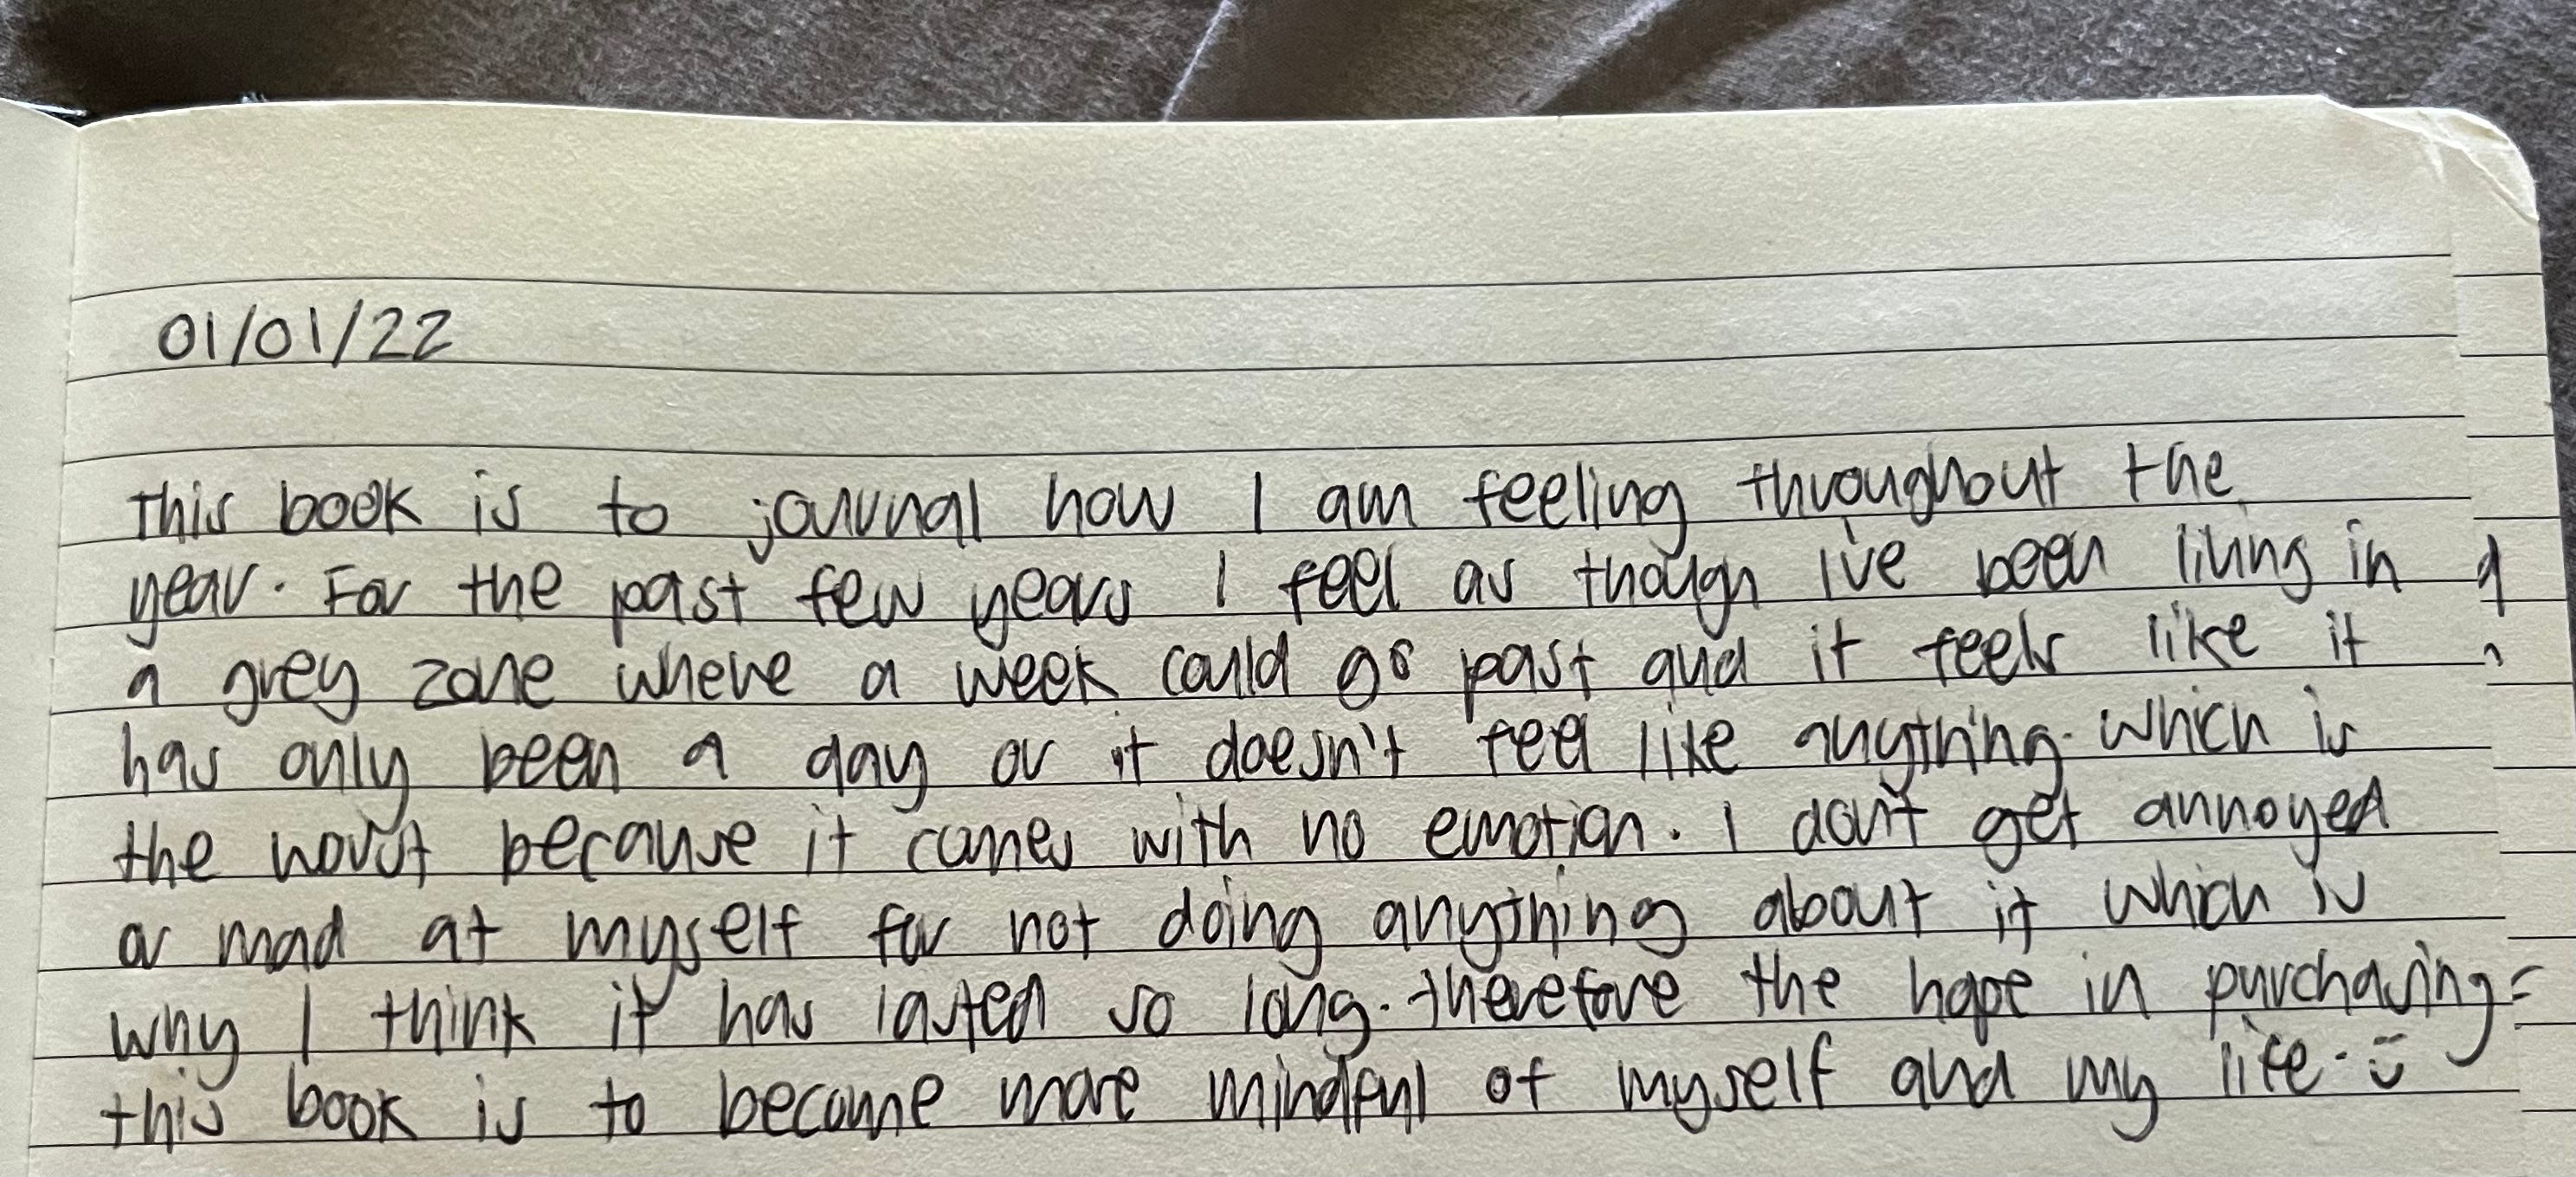 01/01/22
This book is to journal how I am feeling throughout the
year. For the past few years I feel as though I've been living in
a grey zone where a week could go past and it feels like it
has only been a day or it doesn't feel like anything. which is
the worst because it comes with no emotion. I don't get annoyed
or mad at myself for not doing anything about it which is
why I think it has lasted so long. therefore the hope in purchasing
this book is to become more mindful of myself and my life. :)